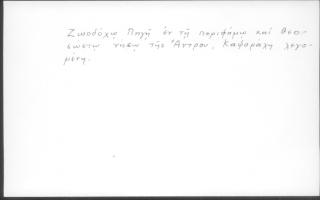 Ζωοδόχῳ Πηγῇ ἐν τῇ περιφήμῳ καί θεο-
σώστῳ νήσῳ τῆς Ἄντρου, Καψοράχη λεγο-
μένη.